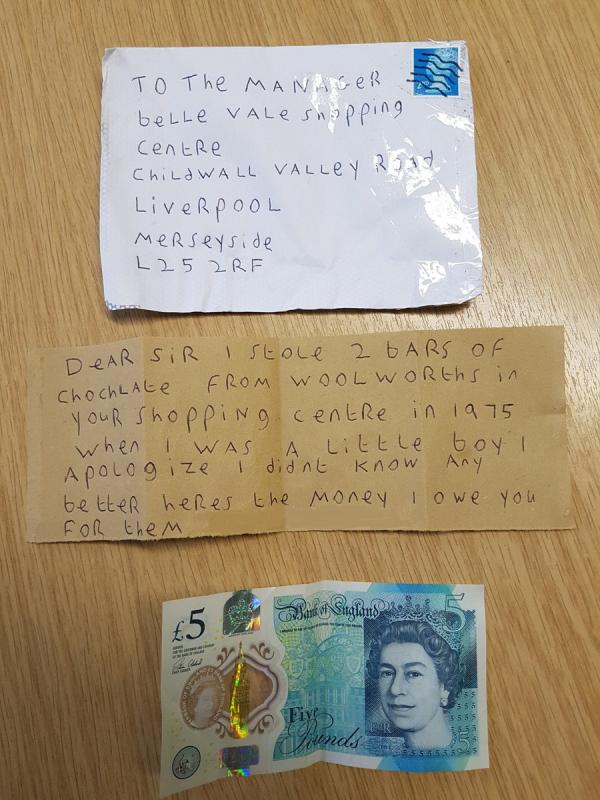 TO The MANAGeR
beLLe VALe shopping
CentRe
ChiLdWALL VALLEY ROAd
LiVeRPOOL
MeRseyside
L25 2RF
DeAR SiR I StOLe 2 bARS OF
ChochLAte FROM WOOLWORths in
YOUR Shopping centre in 1975
when I WAS A Little boy I
Apologize I didnt know Any
better heRes the Money I owe you
FOR theM
£5
Bank of England
5
Five
Pounds